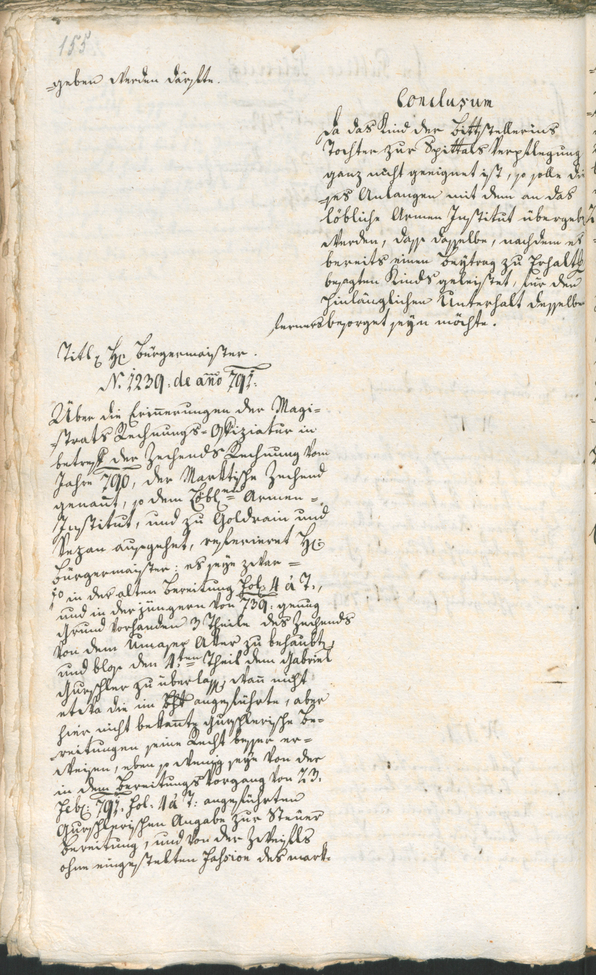 155.
geben werden därfte.
Conclusum
Da das Kind der Bittstellerins
Tochter zur Spittals Verpflegung
ganz nicht geeignet ist, so solle die-
ses Anlangen mit dem an das
löbliche Armen Institut übergeb
werden, dass dasselbe, nachdem es
bereits einen Beytrag zu Erhalt
besagten Kinds geleistet, für den
hinlänglichen Unterhalt desselbe
ferners besorget seyn möchte.
Titl Hr Bürgermaister.
N. 1239. de año 791.
Über die Erinnerungen der Magi-
strats Rechnungs-Offiziatur in
betreff der Zechends Rechnung vom
Jahre 790, der Marktische Zechend
genañt, so dem Löbl: Armen-
Institut, und zu Goldrain und
Vezan ausgehet, referieret Hr:
Bürgermaister: es seye zwar
so in der alten Bereitung Fol. 4 à T.,
und in der jüngern von 739. genug
Grund vorhanden 3 Theile des Zechends
von dem Umaser Aker zu behaubt
und blos den 4ten Theil dem Gabriel
Gurschler zu überlass, wañ nicht
etwa die im angeführte, aber
hier nicht bekante Gurschlerische Be-
reitungen seine Recht besser er-
weisen, eben so wenig seye von der
in dem Bereitungs Vorgang von 23.
Feb: 791. Fol. 4 à T. angeführten
Gurschlerischen Angabe zur Steuer
bereitung, und von der Zweifls
ohne eingestelten Fassion des mark-